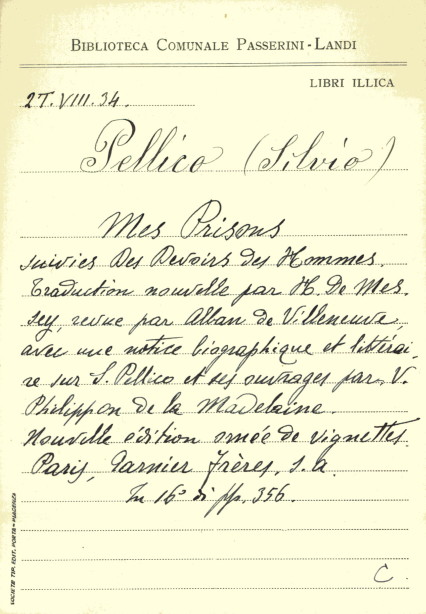 BIBLIOTECA COMUNALE PASSERINI-LANDI
LIBRI ILLICA
27.VIII.34.
Pellico (Silvio)
Mes Prisons
suivies Des Devoirs des Hommes.
Traduction nouvelle par H. De Mes.
sey, revue par Alban de Villeneuve,
avec une notice biographique et littérai,
re sur S. Pellico et ses ouvrages par V.
Philippon de la Madelaine.
Nouvelle édition ornée de vignettes.
Paris, Garnier Frères, s.a.
In 16° di pp. 356.
C.
SOCIETÀ TIP. EDIT. PORTA - PIACENZA